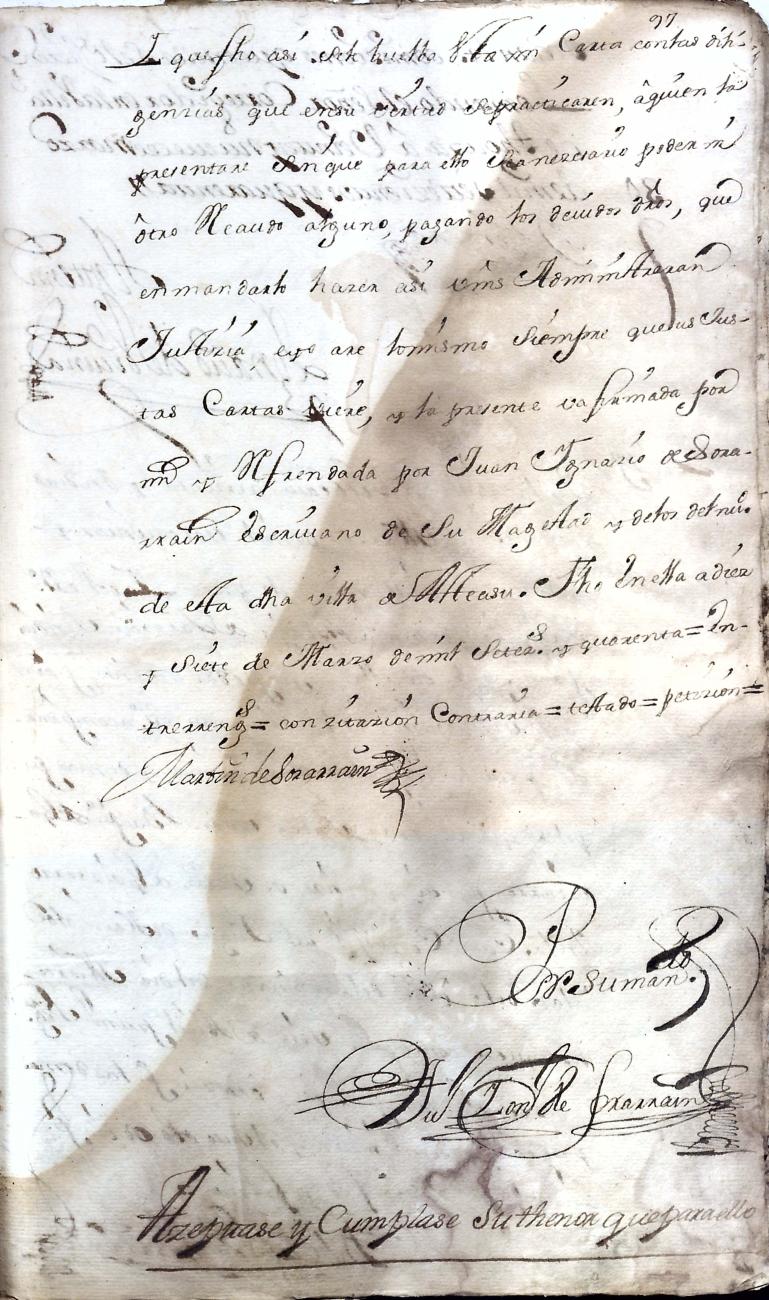 97
I que fho así seh buelba Esta mi Carta con las dili-
genzias que en su vertud se practicaren, â quien la
presentare sin que para ello sea nezesario poder ni
ôtro Recaudo alguno, pagando los devidos dros, que
en mandarlo hazer así vms Administraran
Justizia e yo are lo mismo siempre que sus Jus-
tas Cartas viere, y la presente va firmada por
mi y Refrendada por Juan Ygnazio de Sora-
rrain Escrivano de Su Magestad y delos del nu.º
de esta dha villa de Alleasu. Fh.ª en ella a diez
y Siete de Marzo de mil Setez.s y quarenta = En-
trerreng.s = con zitazion Contraria = testado = petizion =
Martin de Sorarrain
Por Suman.do
Ju.º Ygn.º de Sorarrain
Azeptase y Cumplase Suthenor que para ello